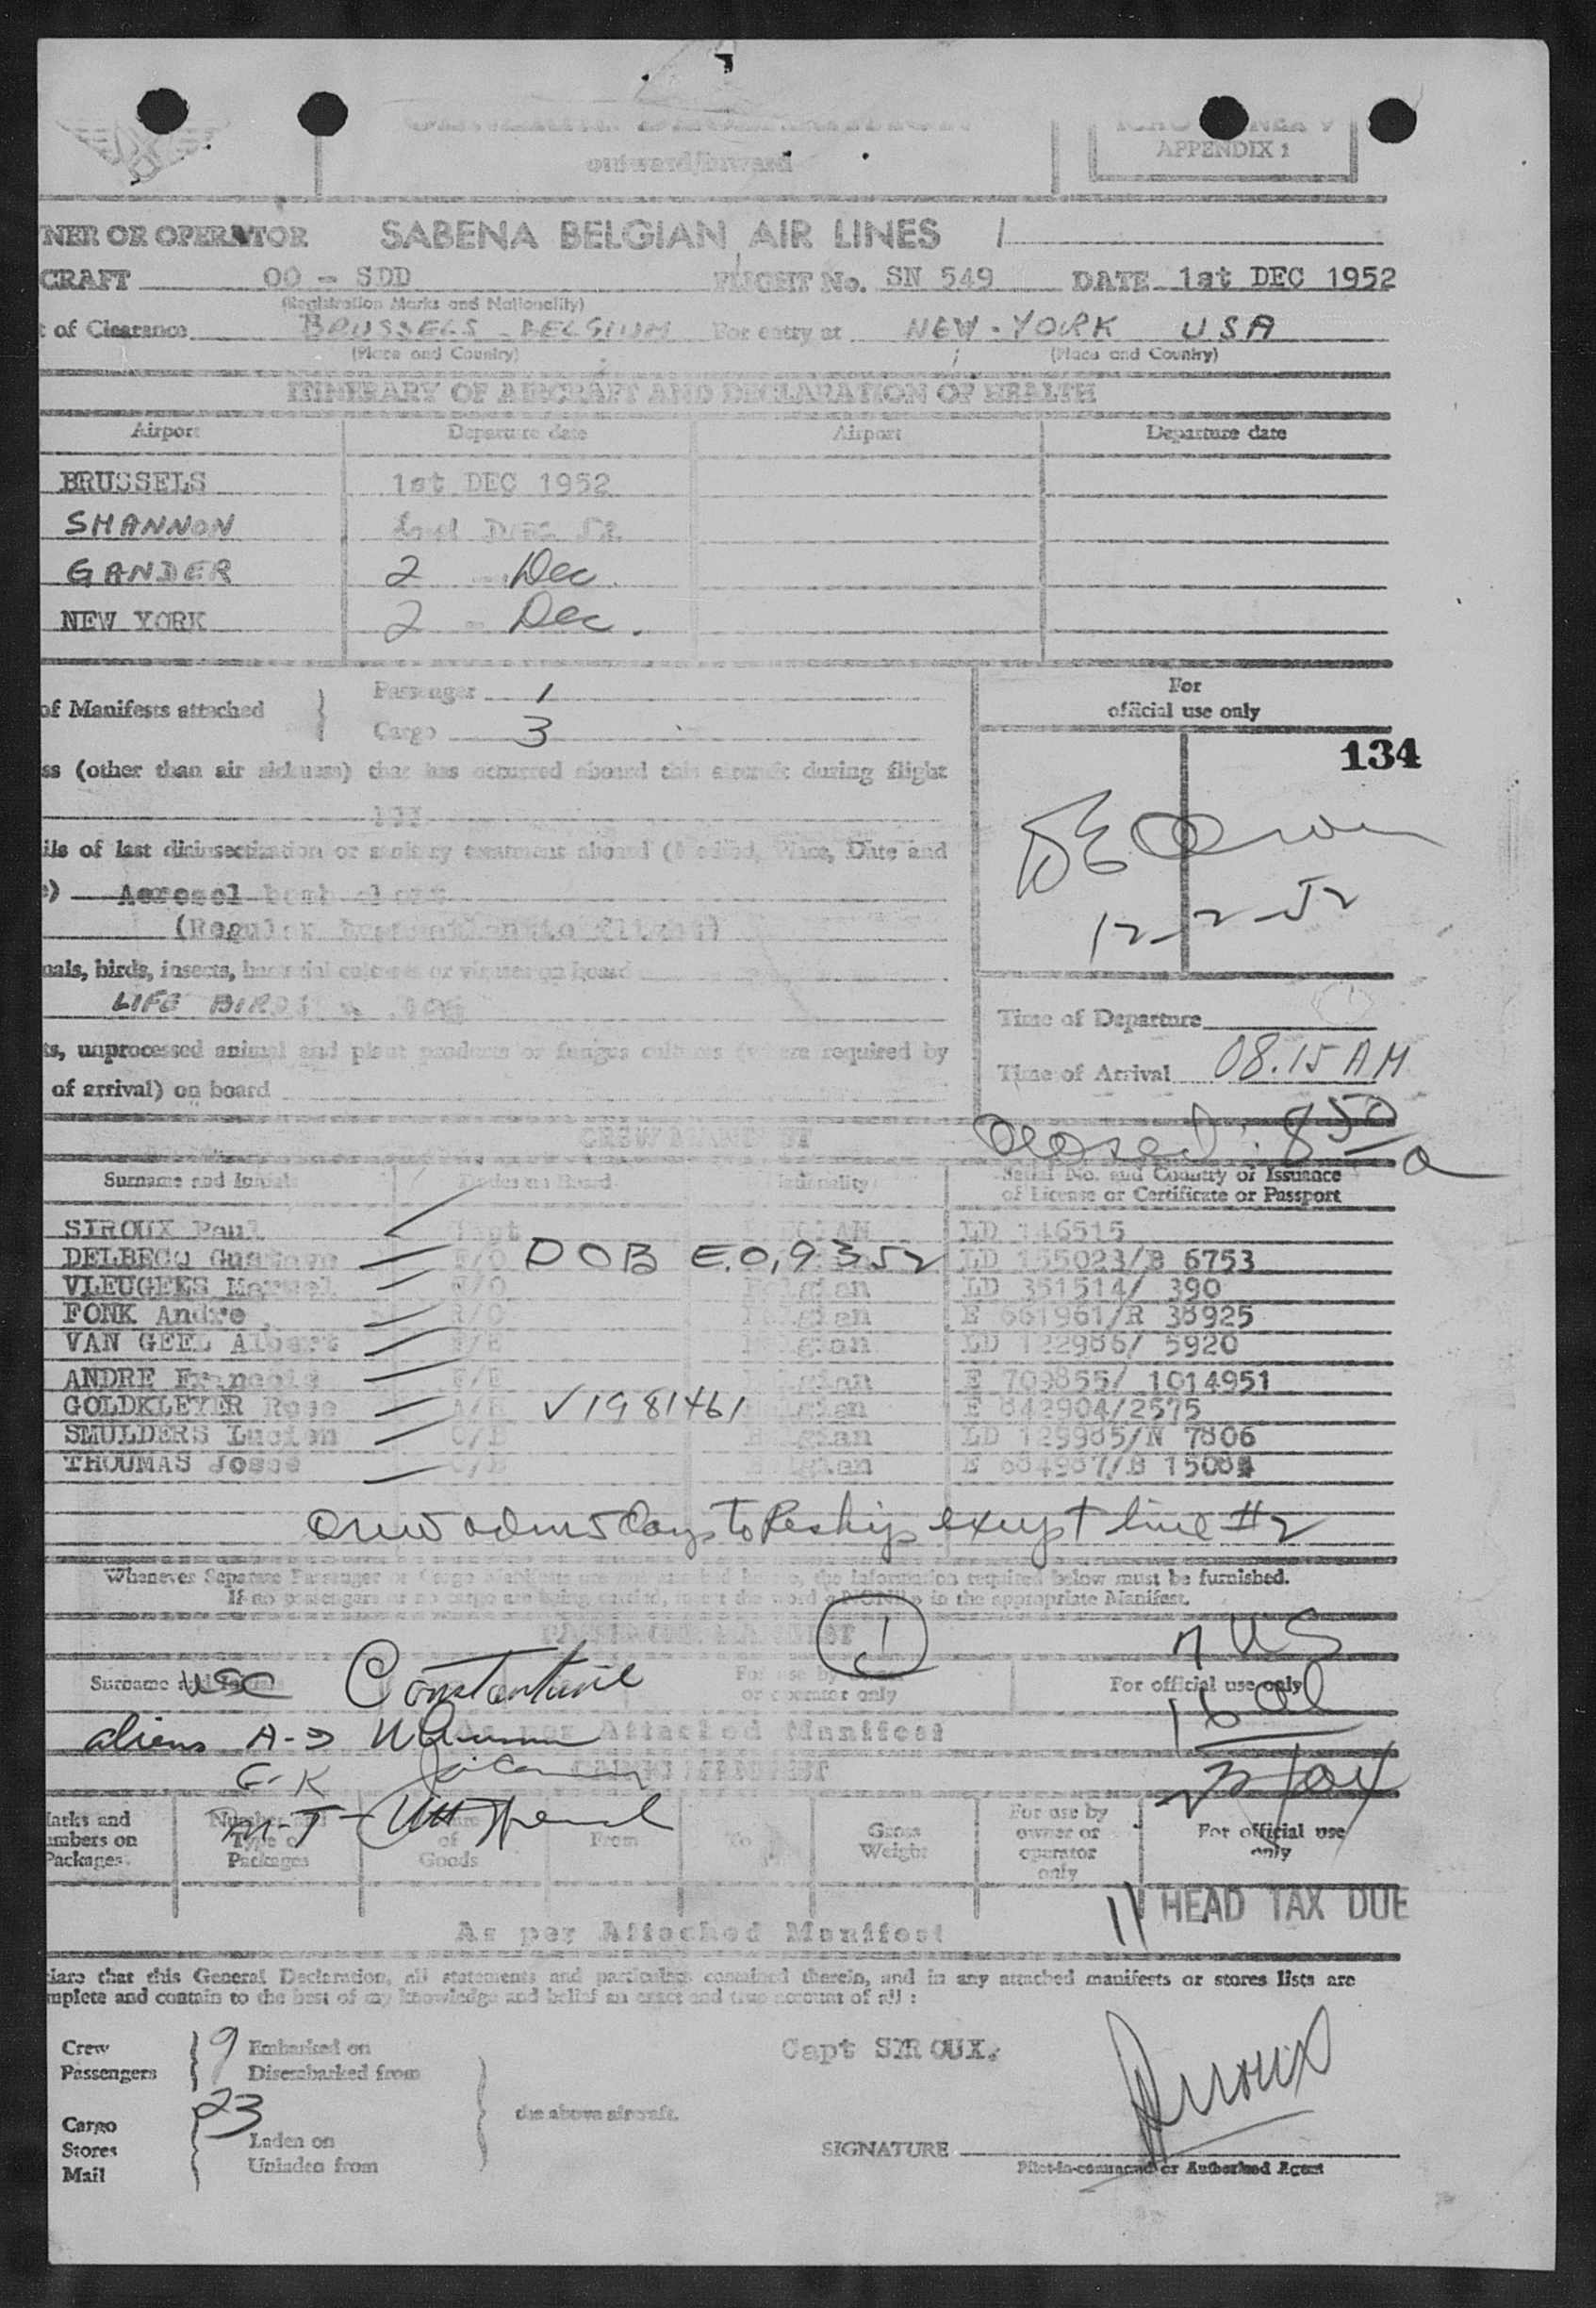 outward/inward
APPENDIX 1
NER OR OPERATOR SABENA BELGIAN AIR LINES
CRAFT OO - SDD FLIGHT No. SN 549 DATE 1st DEC 1952
(Registration Marks and Nationality)
t of Clearance BRUSSELS - BELGIUM For entry at NEW-YORK USA
(Place and Country) (Place and Country)
ITINERARY OF AIRCRAFT AND DECLARATION OF HEALTH
Airport Departure date Airport Departure date
BRUSSELS 1st DEC 1952
SHANNON
GANDER 2 Dec.
NEW YORK 2 - Dec.
of Manifests attached
Passenger 1
Cargo 3
For
official use only
134
ss (other than air sickness) that has occurred aboard this aircraft during flight
ils of last disinsectization or sanitary treatment aboard (Method, Place, Date and
e) Aerosol
12-2-52
(Regular transatlantic flight)
nals, birds, insects, bacterial cultures or viruses on board
LIFE BIRDS
Time of Departure
ts, unprocessed animal and plant products or fungus cultures (where required by
Time of Arrival 08.15 AM
of arrival) on board
Closed: 8 50 a
CREW MANIFEST
Surname and Initials Duties on Board Nationality Serial No. and Country of Issuance
of License or Certificate or Passport
SIROUX Paul LD 146515
DELBECQ Gustave DOB E.O. 9352 LD 155023/B 6753
VLEUGELS Marcel Belgian LD 351514/ 390
FONK Andre R/O Belgian E 661961/R 38925
VAN GEEL Albert Belgian LD 122986/ 5920
ANDRE Francois Belgian E 709855/ 1014951
GOLDKLEYER Rose V1981461 Belgian E 842904/2575
SMULDERS Lucien Belgian LD 129985/N 7806
THOUMAS Josse Belgian
Crew adm 5 days to Reship except line #2
Whenever Separate Passenger or Cargo Manifests are not attached hereto, the information required below must be furnished.
If no passengers or no cargo are being carried, insert the word «NONE» in the appropriate Manifest.
PASSENGER MANIFEST
1
7 US
Surname and Initials USC Constantine For use by owner or operator only For official use only
16 al
aliens A-D
As per Attached Manifest
G-K
CARGO MANIFEST
23
M-T
Marks and
umbers on
Packages.
Number and
Type of
Packages
Nature
of
Goods
From
To
Gross
Weight
For use by
owner or
operator
only
For official use
only
11 HEAD TAX DUE
As per Attached Manifest
clare that this General Declaration, all statements and particulars contained therein, and in any attached manifests or stores lists are
mplete and contain to the best of my knowledge and belief an exact and true account of all :
Crew 9 Embarked on
Passengers Disembarked from
23
Cargo
Stores Laden on
Mail Unladen from
the above aircraft.
Capt SIROUX.
Siroux
SIGNATURE
Pilot-in-command or Authorised Agent